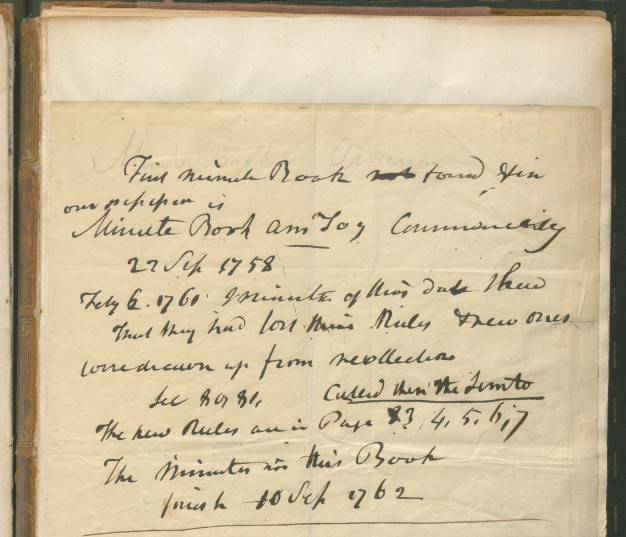 First minute Book not found & in
our possession is
Minute Book Amn Soy Commencing
22 Sep 1758
Feby 6. 1761 Minute of this date Shew
That they had lost their Rules & new ones
were drawn up from recollection
See 80 or 81, Called then the Junto
The new Rules are in Page 83, 4, 5, 6, 7
The Minutes in this Book
finish 10 Sep 1762